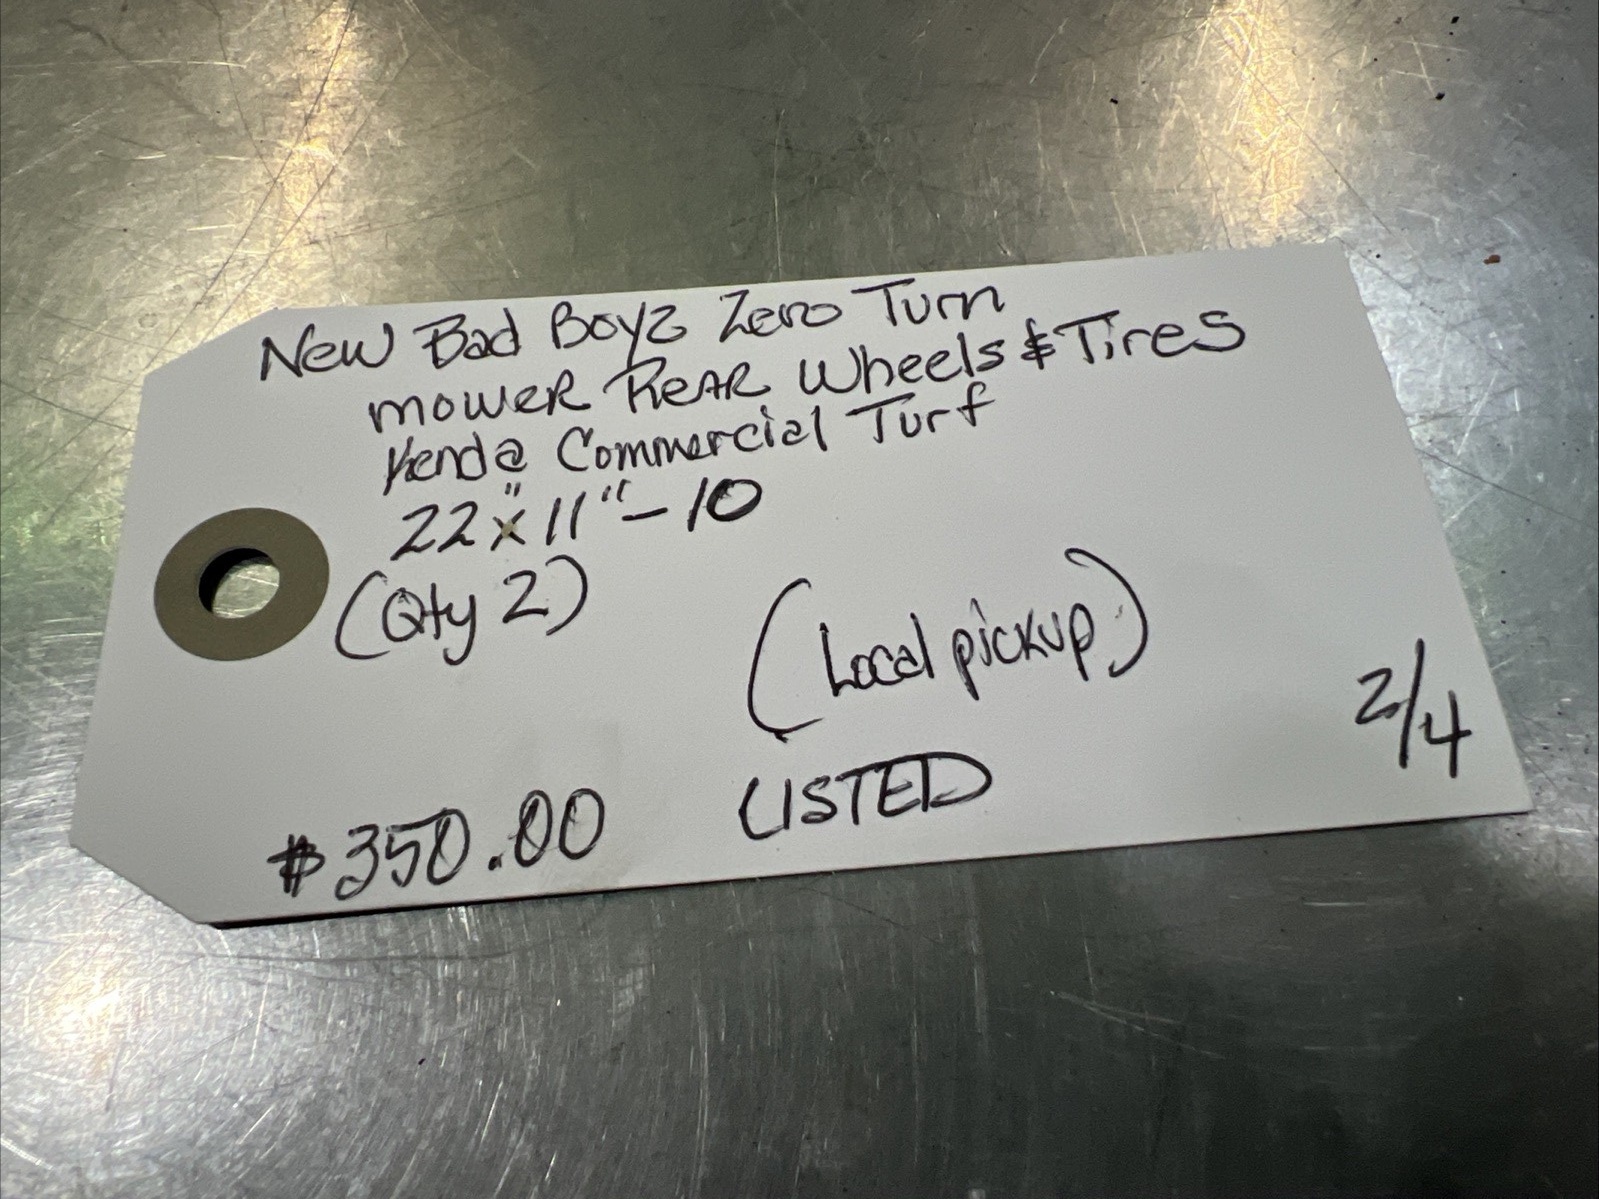 New Bad Boyz Zero Turn
mower Rear Wheels & Tires
Kenda Commercial Turf
22"x11"-10
(Qty 2)
(Local pickup)
2/4
$350.00 LISTED